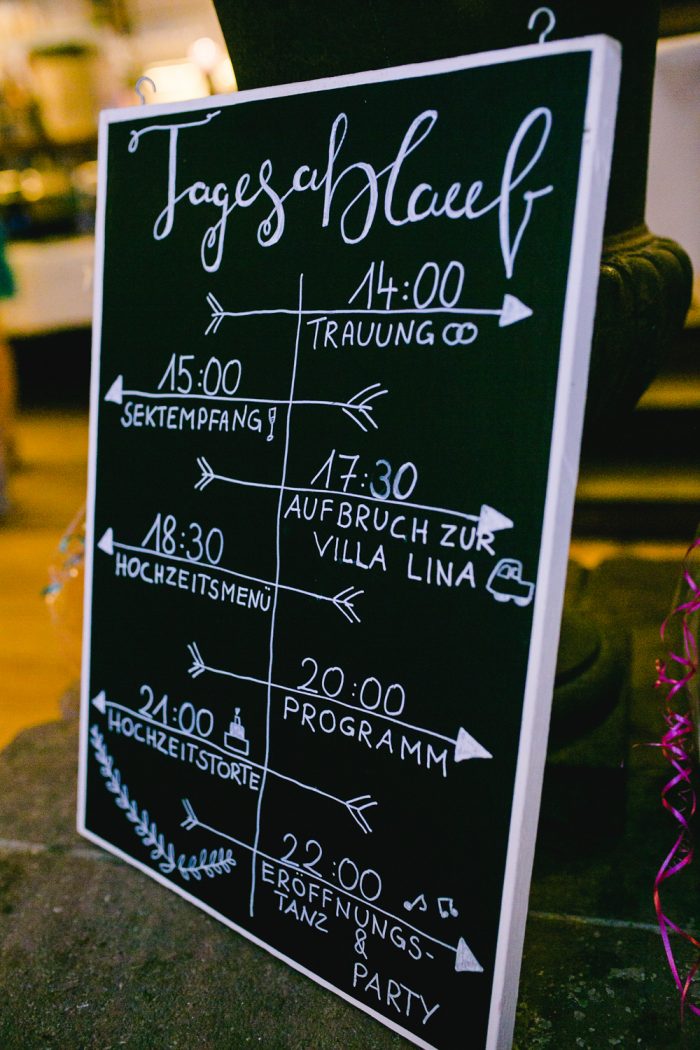 Tagesablauf
14:00
TRAUUNG
15:00
SEKTEMPFANG
17:30
AUFBRUCH ZUR
VILLA LINA
18:30
HOCHZEITSMENÜ
20:00
PROGRAMM
21:00
HOCHZEITSTORTE
22:00
ERÖFFNUNGS-
TANZ
&
PARTY